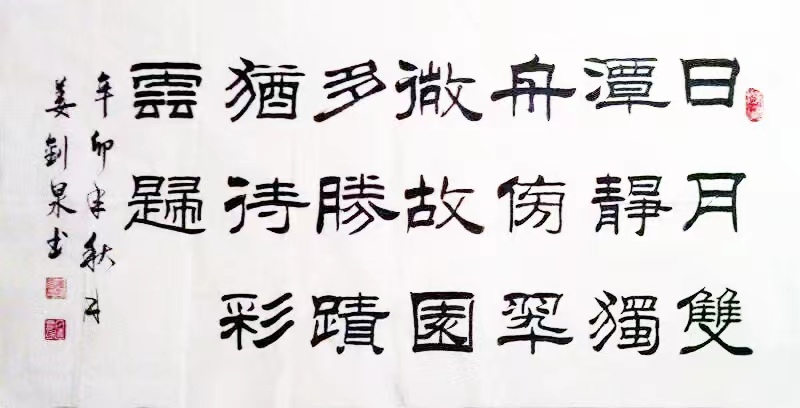 日月雙
潭靜獨
舟傍翠
微故園
多勝蹟
猶待彩
雲歸
辛卯年秋月
姜劍泉書